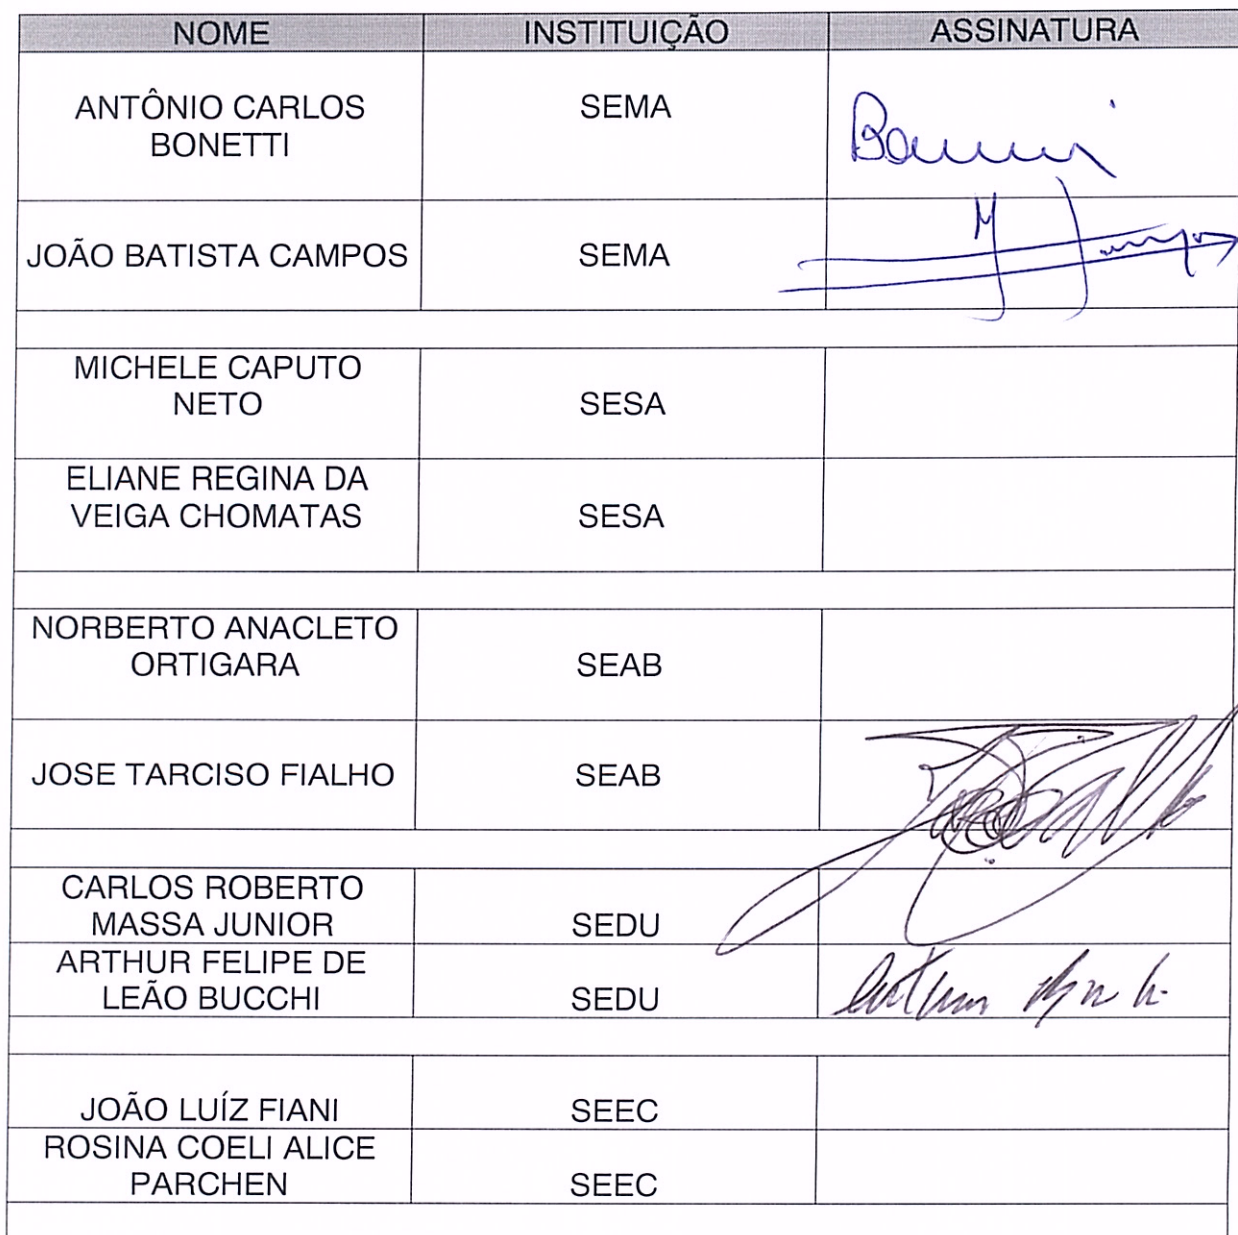 NOME INSTITUIÇÃO ASSINATURA
ANTÔNIO CARLOS
BONETTI SEMA
JOÃO BATISTA CAMPOS SEMA
MICHELE CAPUTO
NETO SESA
ELIANE REGINA DA
VEIGA CHOMATAS SESA
NORBERTO ANACLETO
ORTIGARA SEAB
JOSE TARCISO FIALHO SEAB
CARLOS ROBERTO
MASSA JUNIOR SEDU
ARTHUR FELIPE DE
LEÃO BUCCHI SEDU
JOÃO LUÍZ FIANI SEEC
ROSINA COELI ALICE
PARCHEN SEEC